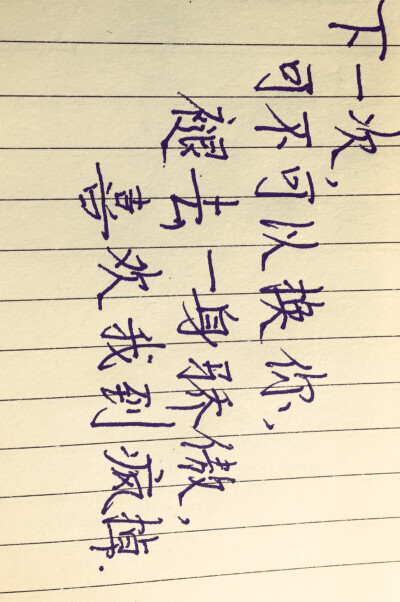 下一次，
可不可以换你，
褪去一身骄傲，
喜欢我到疯掉.